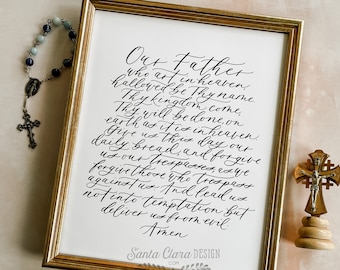 Our Father
who art in heaven,
hallowed be Thy name.
Thy kingdom come,
Thy will be done, on
earth as it is in heaven.
Give us this day our
daily bread, and forgive
us our trespasses, as we
forgive those who trespass
against us. And lead us
not into temptation but
deliver us from evil.
Amen
Santa Clara DESIGN
.COM